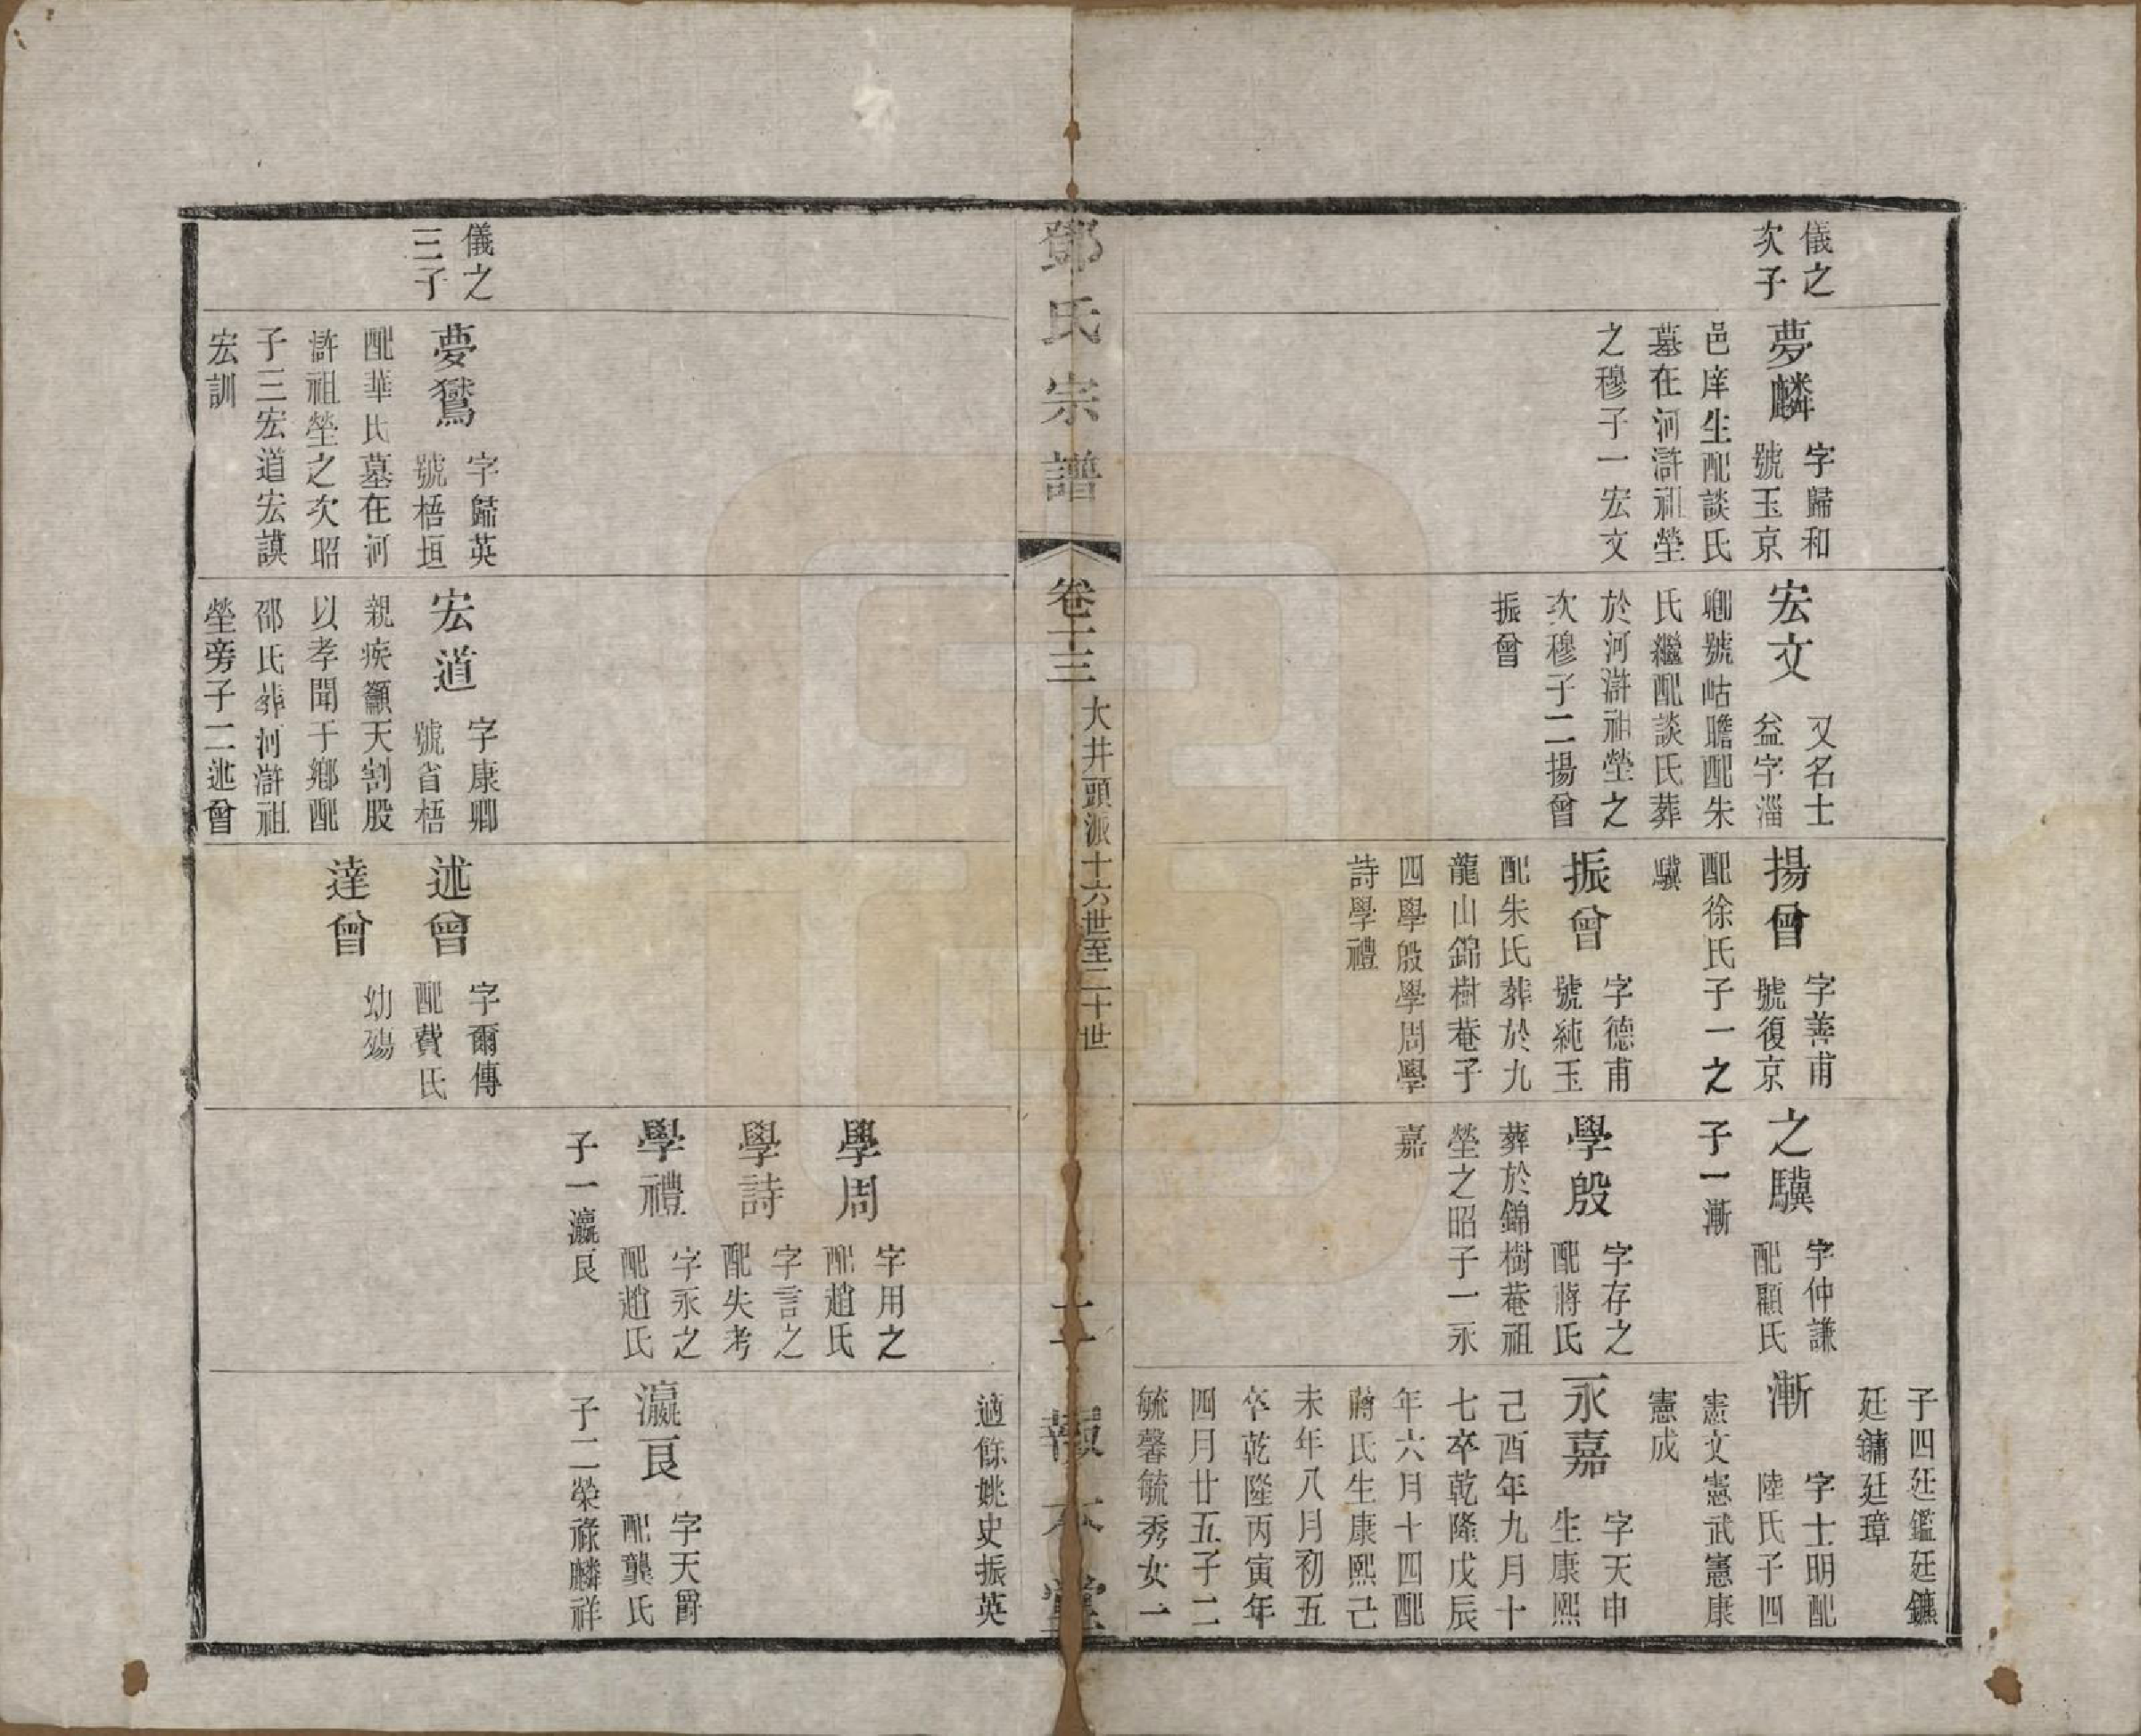 儀之
次子
夢麟
字歸和
號玉京
邑庠生配談氏
墓在河滸祖塋
之穆子一宏文
宏文
又名士
益字淄
卿號岵瞻配朱
氏繼配談氏葬
於河滸祖塋之
次穆子二揚曾
振曾
揚曾
字善甫
號復京
配徐氏子一之
驥
振曾
字德甫
號純玉
配朱氏葬於九
龍山錦樹菴子
四學殷學周學
詩學禮
之驥
字仲謙
配顧氏
子一漸
學殷
字存之
配蔣氏
葬於錦樹菴祖
塋之昭子一永
嘉
子四廷鑑廷鑣
廷鏞廷璋
漸
字士明配
陸氏子四
憲文憲武憲康
憲成
永嘉
字天申
生康熙
己酉年九月十
七卒乾隆戊辰
年六月十四配
蔣氏生康熙己
未年八月初五
卒乾隆丙寅年
四月廿五子二
毓馨毓秀女一
鄧氏宗譜
卷十三
大井頭派十六世至二十世
二十
報本堂
儀之
三子
夢鶖
字歸英
號梧垣
配華氏墓在河
滸祖塋之次昭
子三宏道宏謨
宏訓
宏道
字康卿
號省梧
親疾籲天割股
以孝聞于鄉配
邵氏葬河滸祖
塋旁子二述曾
述曾
字爾傳
配費氏
達曾
幼殤
學周
字用之
配趙氏
學詩
字言之
配失考
學禮
字永之
配趙氏
子一瀛良
適餘姚史振英
瀛良
字天爵
配龔氏
子二榮祿麟祥